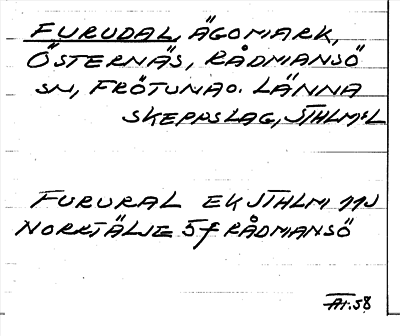 FURUDAL, ÄGOMARK,
ÖSTERNÄS, RÅDMANSÖ
SN, FRÖTUNA O. LÄNNA
SKEPPSLAG, STHLMSL
FURURAL EK STHLM 11J
NORRTÄLJE 5f RÅDMANSÖ